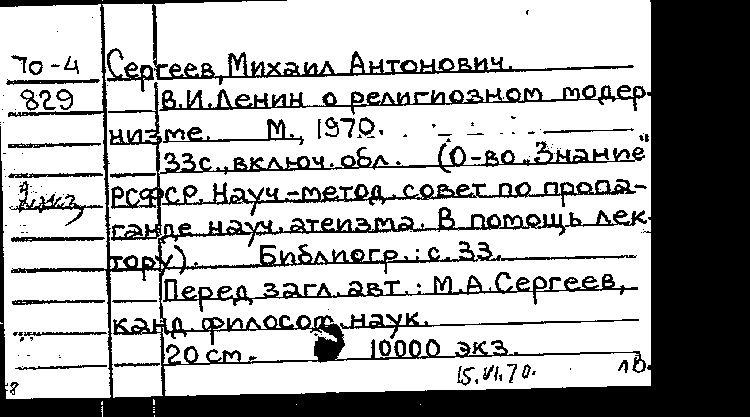 70-4 Сергеев, Михаил Антонович.
829 В.И.Ленин о религиозном модер-
низме. М., 1970.
33с., включ. обл. (О-во „Знание"
2 экз РСФСР. Науч-метод. совет по пропа-
ганде науч. атеизма. В помощь лек-
тору). Библиогр.: с. 33.
Перед загл. авт.: М.А.Сергеев,
канд. философ. наук.
20 см. 10000 экз.
15.VI.70.
8